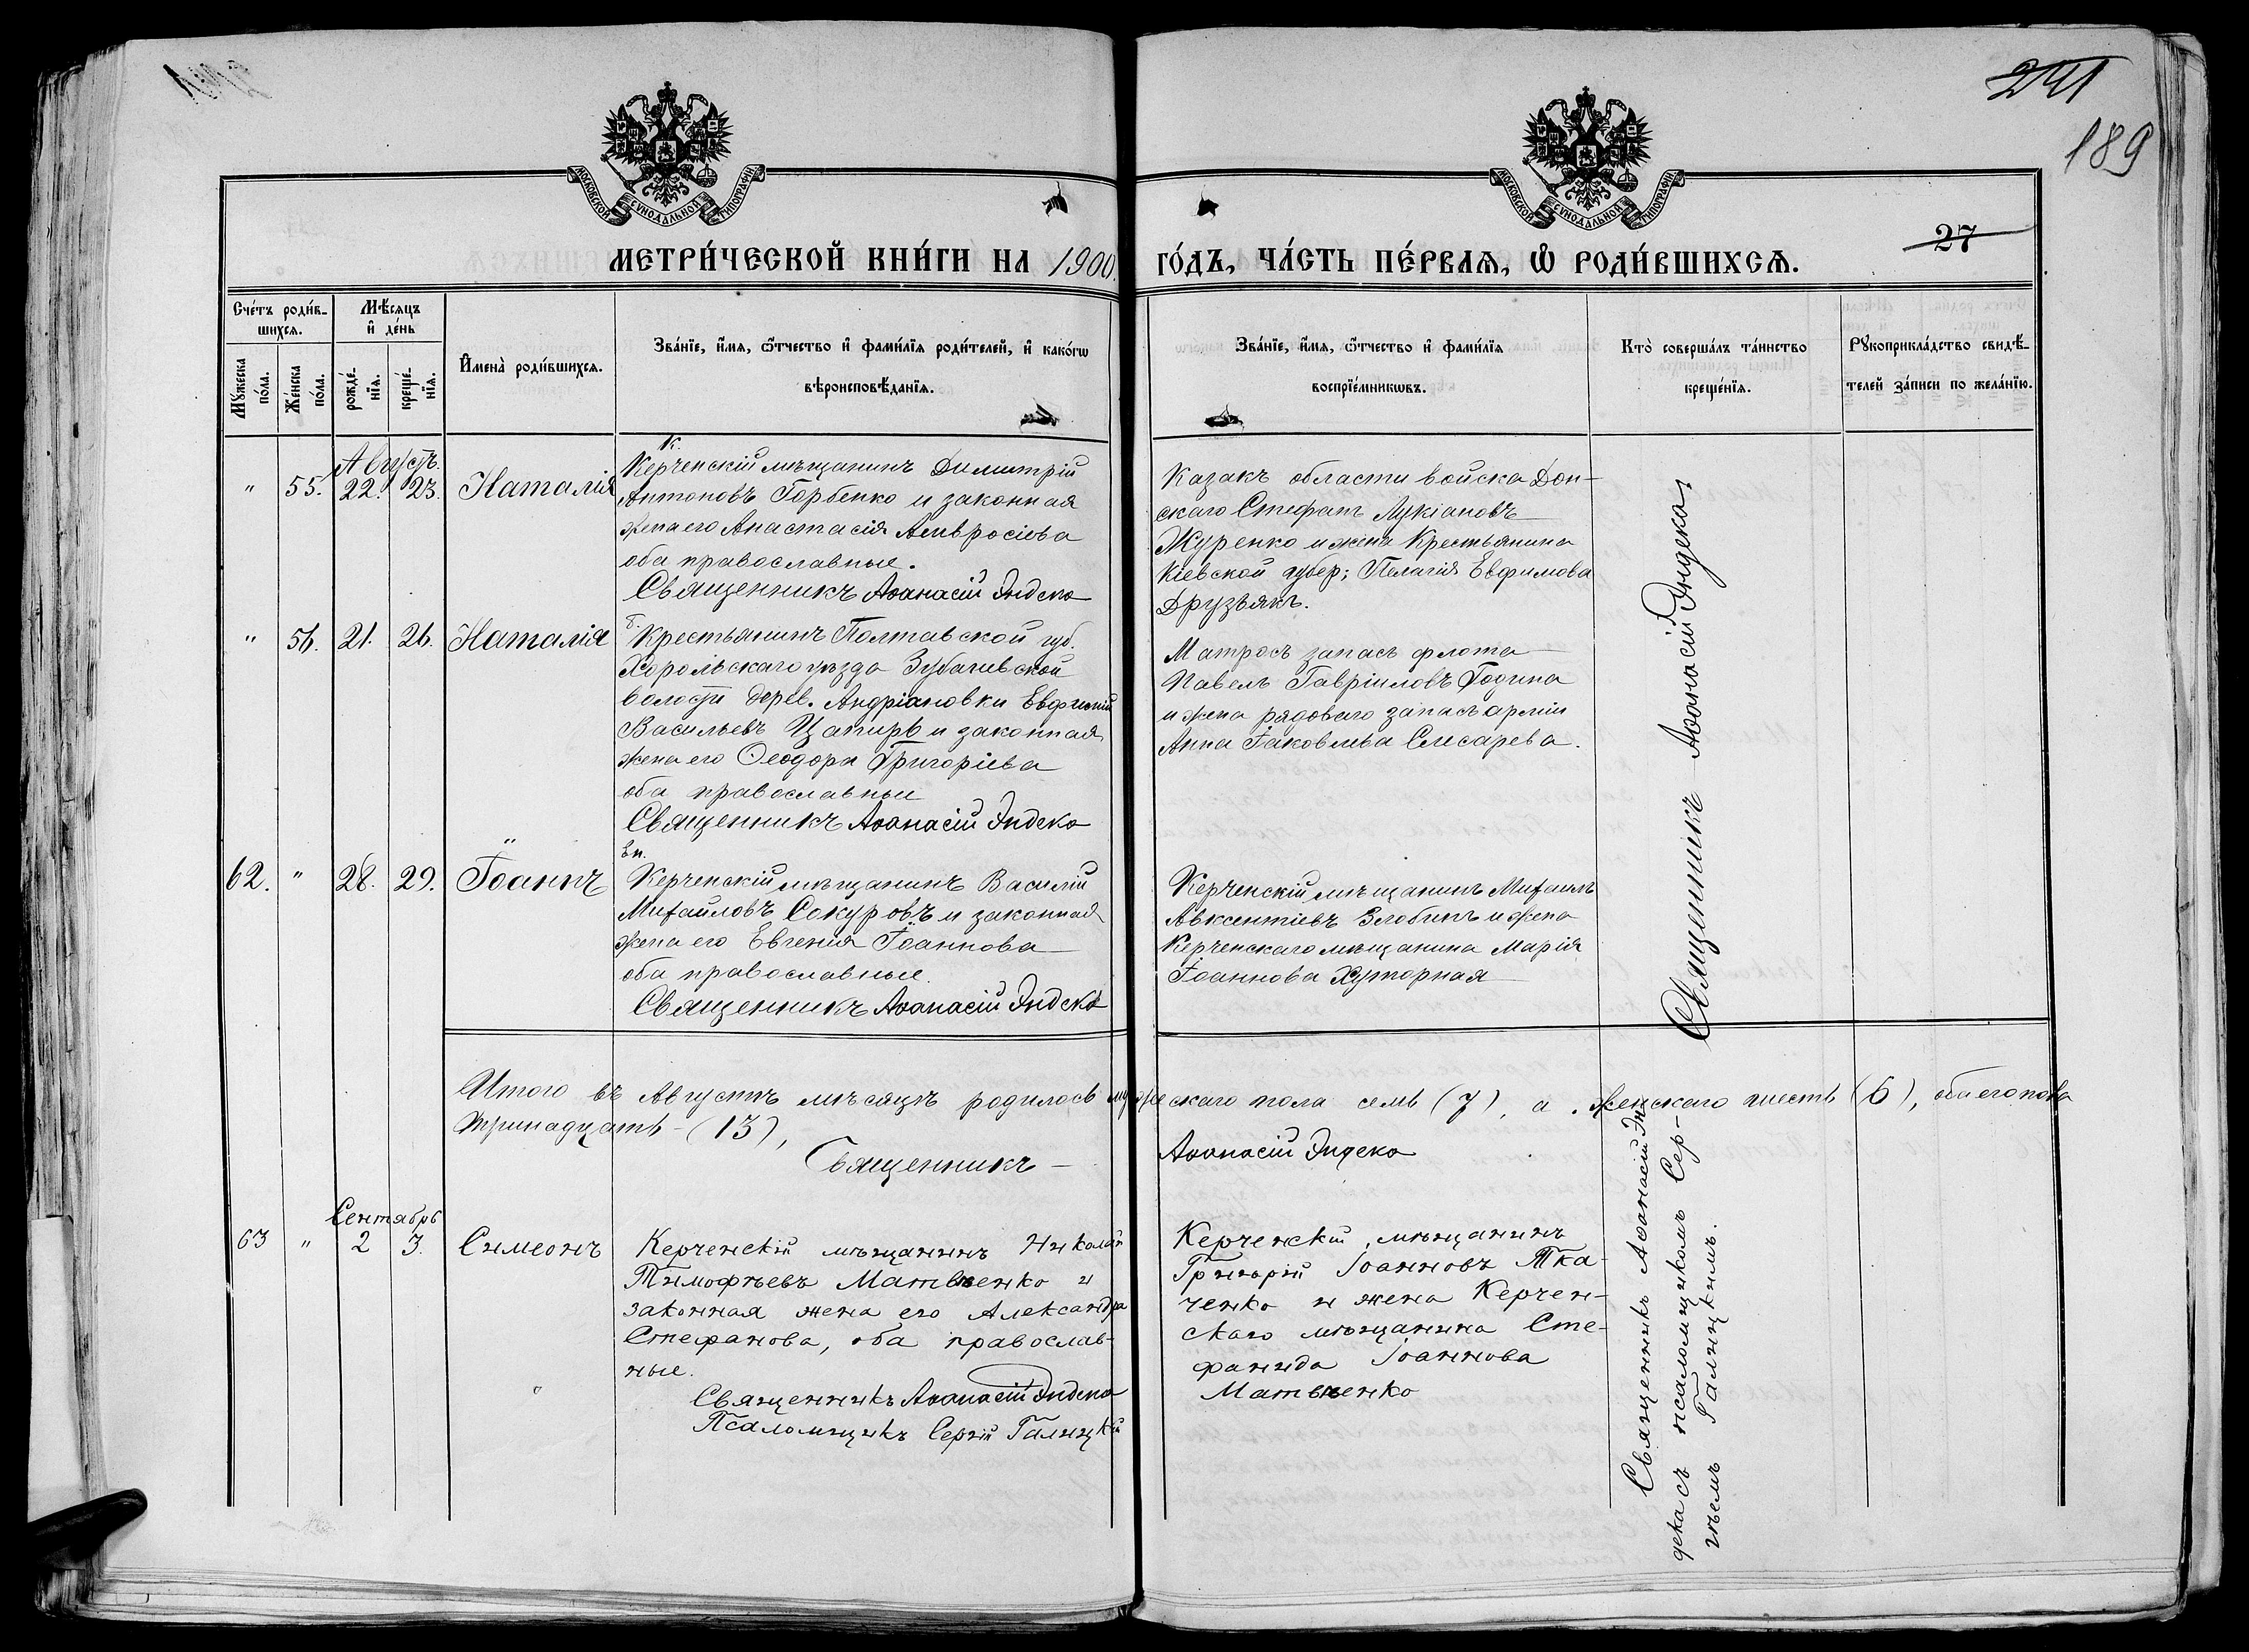 241
189
МОСКОВСКОЙ СУНОДАЛЬНОЙ ТИПОГРАФІИ
МОСКОВСКОЙ СУНОДАЛЬНОЙ ТИПОГРАФІИ
27
МЕТРИ́ЧЕСКОЙ КНИ́ГИ НА 1900
ГО́ДЪ, ЧА́СТЬ ПЕ́РВАѦ, Ѡ РОДИ́ВШИХСѦ.
Сче́тъ роди́в-
шихсѧ.
Мꙋжеска по́ла.
Же́нска по́ла.
Мѣ́сѧцъ
и де́нь
рожде́-
нїѧ.
креще́-
нїѧ.
И҆мена̀ роди́вшихсѧ.
Зва́нїе, и҆́мѧ, ѻ҆́тчество и҆ фами́лїѧ роди́телей, и҆ како́гѡ
вѣроисповѣ́данїѧ.
Зва́нїе, и҆́мѧ, ѻ҆́тчество и҆ фами́лїѧ
воспрїе́мникѡвъ.
Кто̀ соверша́лъ та́инство
креще́нїѧ.
Рꙋкоприкла́дство свидѣ́-
телей за́писи по жела́нїю.
Августъ.
" 55. 22. 23. Наталія
К.
Керченскій мѣщанинъ Димитрій
Антоновъ Горбенко и законная
жена его Анастасія Амвросіева
оба православные.
Священникъ Аѳанасій Эндека
Казакъ области войска Дон-
скаго Стефанъ Лукіановъ
Журенко и жена Крестьянина
Кіевской губер; Пелагія Евфимова
Друзьякъ.
" 56. 21. 26. Наталія
Крестьянинъ Полтавской губ.
Хорольскаго уѣзда Зубаневской
волости дерев. Андріановки Евфимій
Васильевъ Цапирь и законная
жена его Ѳеодора Григоріева
оба православные
Священникъ Аѳанасій Эндека
Матросъ запаса флота
Павелъ Гавріиловъ Година
и жена рядоваго запаса арміи
Анна Іаковлева Слисарева.
62. " 28. 29. Іоаннъ
Керченскій мѣщанинъ Василій
Михаиловъ Сокуровъ и законная
жена его Евгенія Іоаннова
оба православные.
Священникъ Аѳанасій Эндека
Керченскій мѣщанинъ Михаилъ
Авксентіевъ Злобинъ и жена
Керченскаго мѣщанина Марія
Іоаннова Хуторная
Священникъ Аѳанасій Эндека
Итого въ Августѣ мѣсяцѣ родилось мужескаго пола семь (7), а женскаго шесть (6), обоего пола
тринадцать – (13),
Священникъ – Аѳанасій Эндека
Сентябрь
63 " 2 3. Симеонъ
Керченскій мѣщанинъ Николай
Тимофѣевъ Матвѣенко и
законная жена его Александра
Стефанова, оба православ-
ные.
Священникъ Аѳанасій Эндека
Псаломщикъ Сергій Галицкій
Керченскій мѣщанинъ
Григорій Іоанновъ Тка-
ченко и жена Керчен-
скаго мѣщанина Сте-
фанида Іоаннова
Матвѣенко
Священникъ Аѳанасій Эн-
дека съ псаломщикомъ Сер-
гѣемъ Галицкимъ.